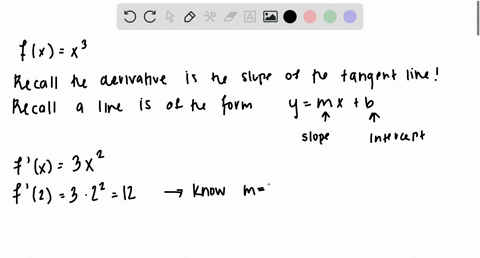 f(x) = x³
Recall the derivative is the slope of the tangent line!
Recall a line is of the form y = mx + b
slope intercept
f'(x) = 3x²
f'(2) = 3 · 2² = 12 → know m=